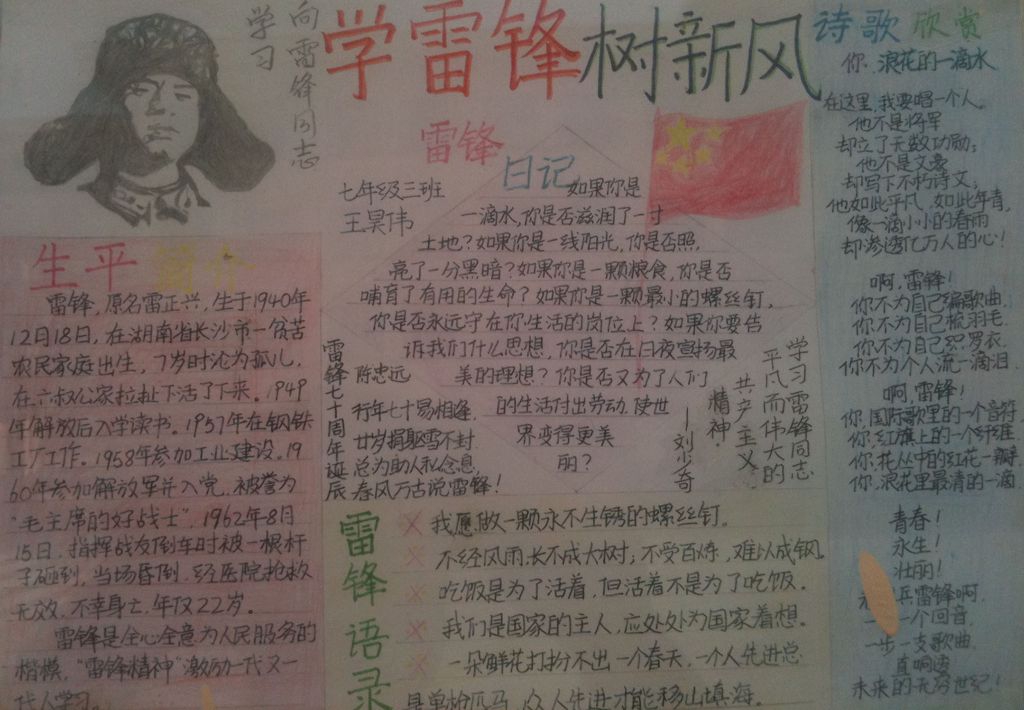 向雷锋同志
学习
学雷锋树新风
诗歌欣赏
你，浪花的一滴水
在这里，我要唱一个人。
他不是将军
却立了无数功勋；
他不是文豪
却写下不朽诗文；
他如此平凡，如此年青，
像一滴小小的春雨
却渗透亿万人的心！
啊，雷锋！
你不为自己编歌曲，
你不为自己梳羽毛，
你不为自己织罗衣，
你不为个人流一滴泪。
啊，雷锋！
你，国际歌里的一个音符
你，红旗上的一个纤维
你，花丛中的红花一瓣
你，浪花里最清的一滴
青春！
永生！
壮丽！
兵雷锋啊，
一个回音，
一步一支歌曲，
直响遍
未来的无穷世纪！
雷锋
日记
七年级三班
王昊伟
如果你是
一滴水，你是否滋润了一寸
土地？如果你是一线阳光，你是否照，
亮了一分黑暗？如果你是一颗粮食，你是否
哺育了有用的生命？如果你是一颗最小的螺丝钉，
你是否永远守在你生活的岗位上？如果你要告
诉我们什么思想，你是否在日夜宣扬最
美的理想？你是否又为了人们
的生活付出劳动，使世
界变得更美
丽？
生平简介
雷锋，原名雷正兴，生于1940年
12月18日，在湖南省长沙市一贫苦
农民家庭出生，7岁时沦为孤儿，
在六叔公家拉扯下活了下来。1949
年解放后入学读书。1957年在钢铁
工厂工作。1958年参加工业建设。19
60年参加解放军并入党，被誉为
“毛主席的好战士”，1962年8月
15日，指挥战友倒车时被一根杆
子砸到，当场昏倒，经医院抢救
无效，不幸身亡，年仅22岁。
雷锋是全心全意为人民服务的
楷模，“雷锋精神”激励一代又一
代人学习。
雷锋七十周年诞辰
陈忠远
行年七十易相逢，
廿岁捐躯雪不封，
总为助人私念息，
春风万古说雷锋！
学习雷锋同志
平凡而伟大的
共产主义
精神
——刘少奇
雷锋语录
我愿做一颗永不生锈的螺丝钉。
不经风雨，长不成大树，不受百炼，难以成钢。
吃饭是为了活着，但活着不是为了吃饭。
我们是国家的主人，应处处为国家着想。
一朵鲜花打扮不出一个春天，一个人先进总
是单枪匹马，众人先进才能移山填海。